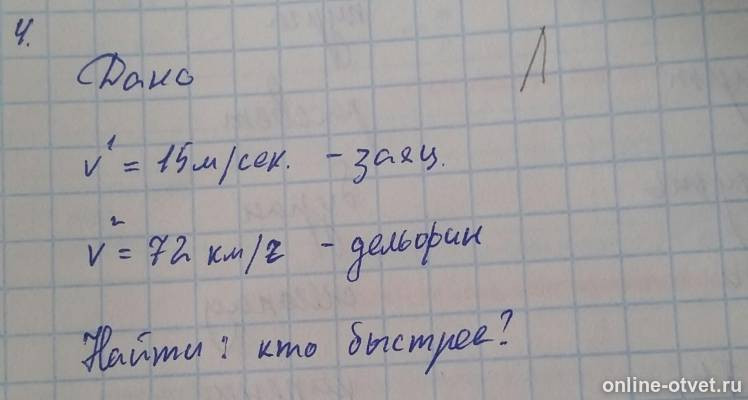 4.
Дано
v¹ = 15м/сек. - заяц.
v² = 72 км/г - дельфин
Найти: кто быстрее?
online-otvet.ru